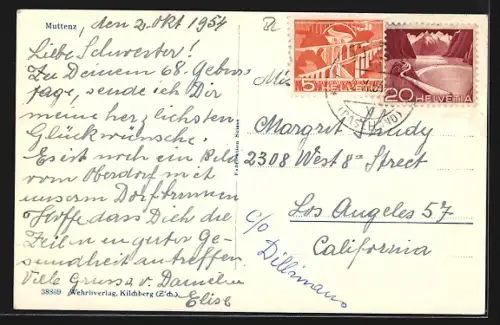 Muttenz, den 2. Okt 1954
Liebe Schwester!
Zu Deinem 68. Geburts
tage, sende ich Dir
meine herzlichsten
Glückwünsche.
Es ist noch ein Bild
vom Oberdorf mit
unserm Dorfbrunnen
Hoffe dass Dich die
Zeilen in guter Ge-
sundheit antreffen.
Viele Grüsse v.
Elise
38359 Wehrliverlag, Kilchberg (Z'ch.)
5 HELVETIA
20 HELVETIA
Margrit
2308 West 8th Street
Los Angeles 57
California
c/o
Dillimans